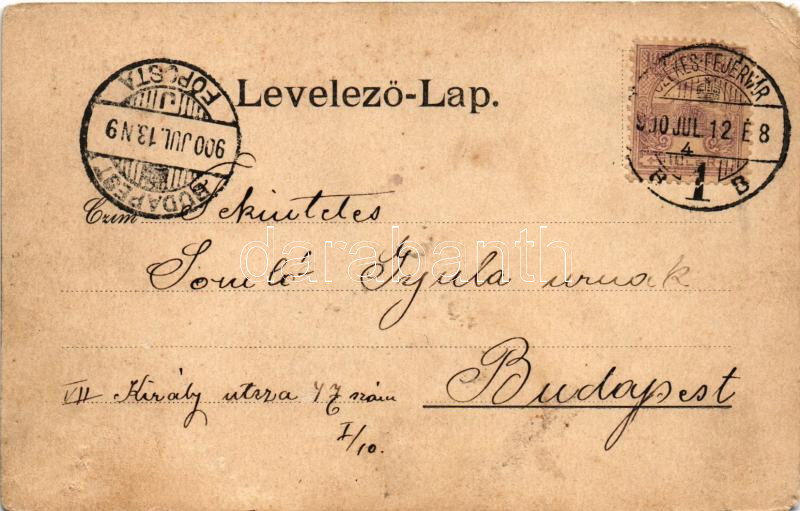 Levelező-Lap.
BUDAPEST
900 JUL. 13. N 9
FŐPOSTA
SZÉKES-FEJÉRVÁR
900 JUL. 12 É 8
4
B 1 B
Czim Tekintetes
Somló Gyula urnak
Budapest
VII Király utsza 47 szám
I/10.
darabanth